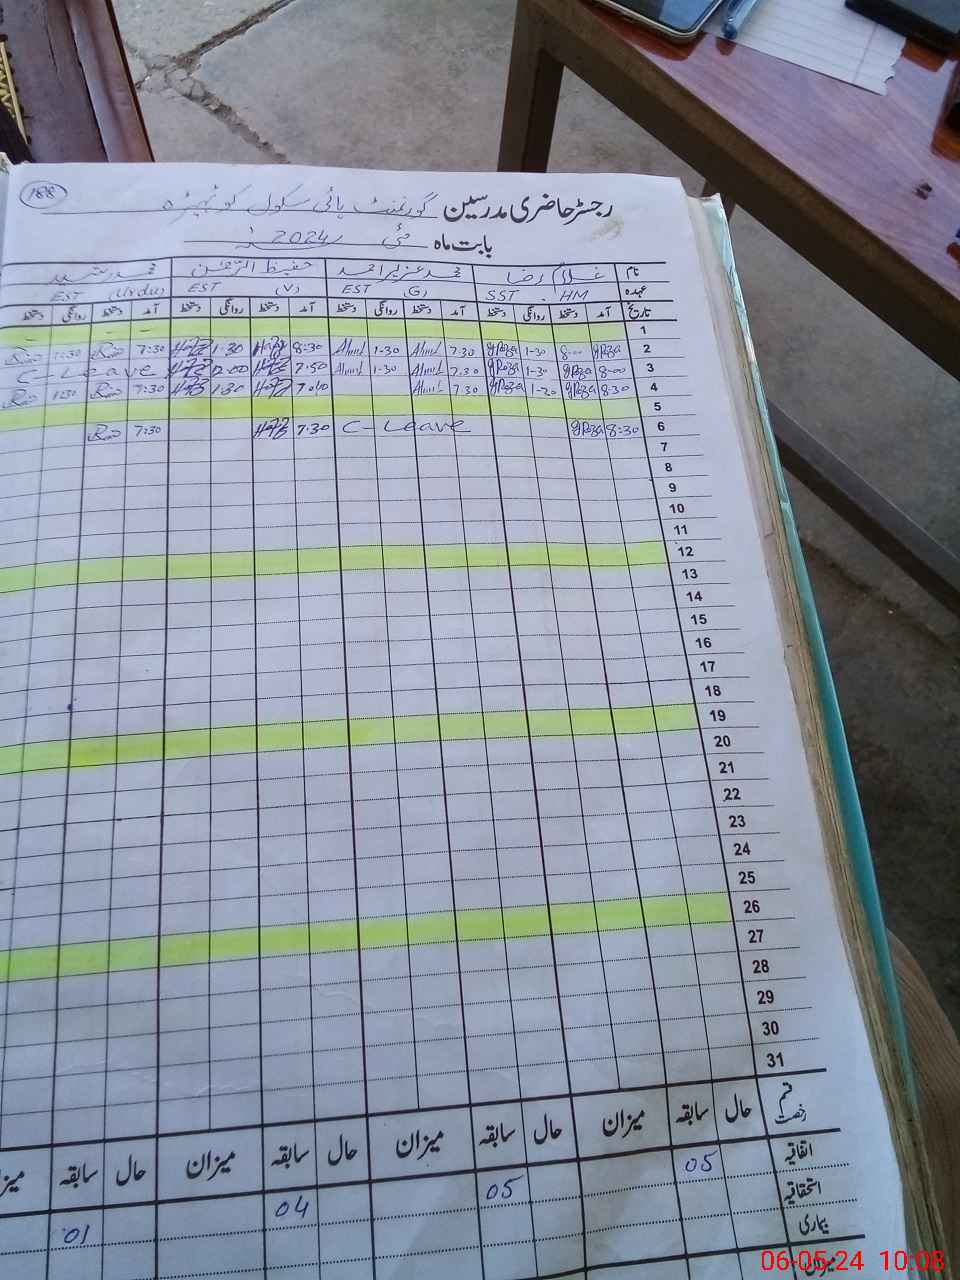 188
رجسٹر حاضری مدرسین گورنمنٹ ہائی سکول کوٹہیڑہ
بابت ماہ مئی سنہ 2024ء
نام غلام رضا محمد عزیر احمد حفیظ الرحمٰن محمد رشید
عہدہ SST . HM EST (G) EST (V) EST (Urdu)
تاریخ آمد دستخط روانگی دستخط آمد دستخط روانگی دستخط آمد دستخط روانگی دستخط آمد دستخط روانگی دستخط
1 - -
2 gRaza 8-00 1-30 gRaza 7.30 Ahmd 1-30 Ahmd 8-30 1-30 7:30 1:30
3 8-00 gRaza 1-30 gRaza 7.30 1-30 Ahmd 7:50 12:00 C-Leave
4 8:30 gRaza 1-20 gRaza 7.30 Ahmd 7:40 1:30 7:30 1:30
5
6 8:30 gRaza C-Leave 7:30 7:30
7
8
9
10
11
12
13
14
15
16
17
18
19
20
21
22
23
24
25
26
27
28
29
30
31
قسم رخصت حال سابقہ میزان حال سابقہ میزان حال سابقہ میزان حال سابقہ میزان
اتفاقیہ 05 05 04 01
استحقاقیہ
بیماری
میزان
06-05-24 10:08